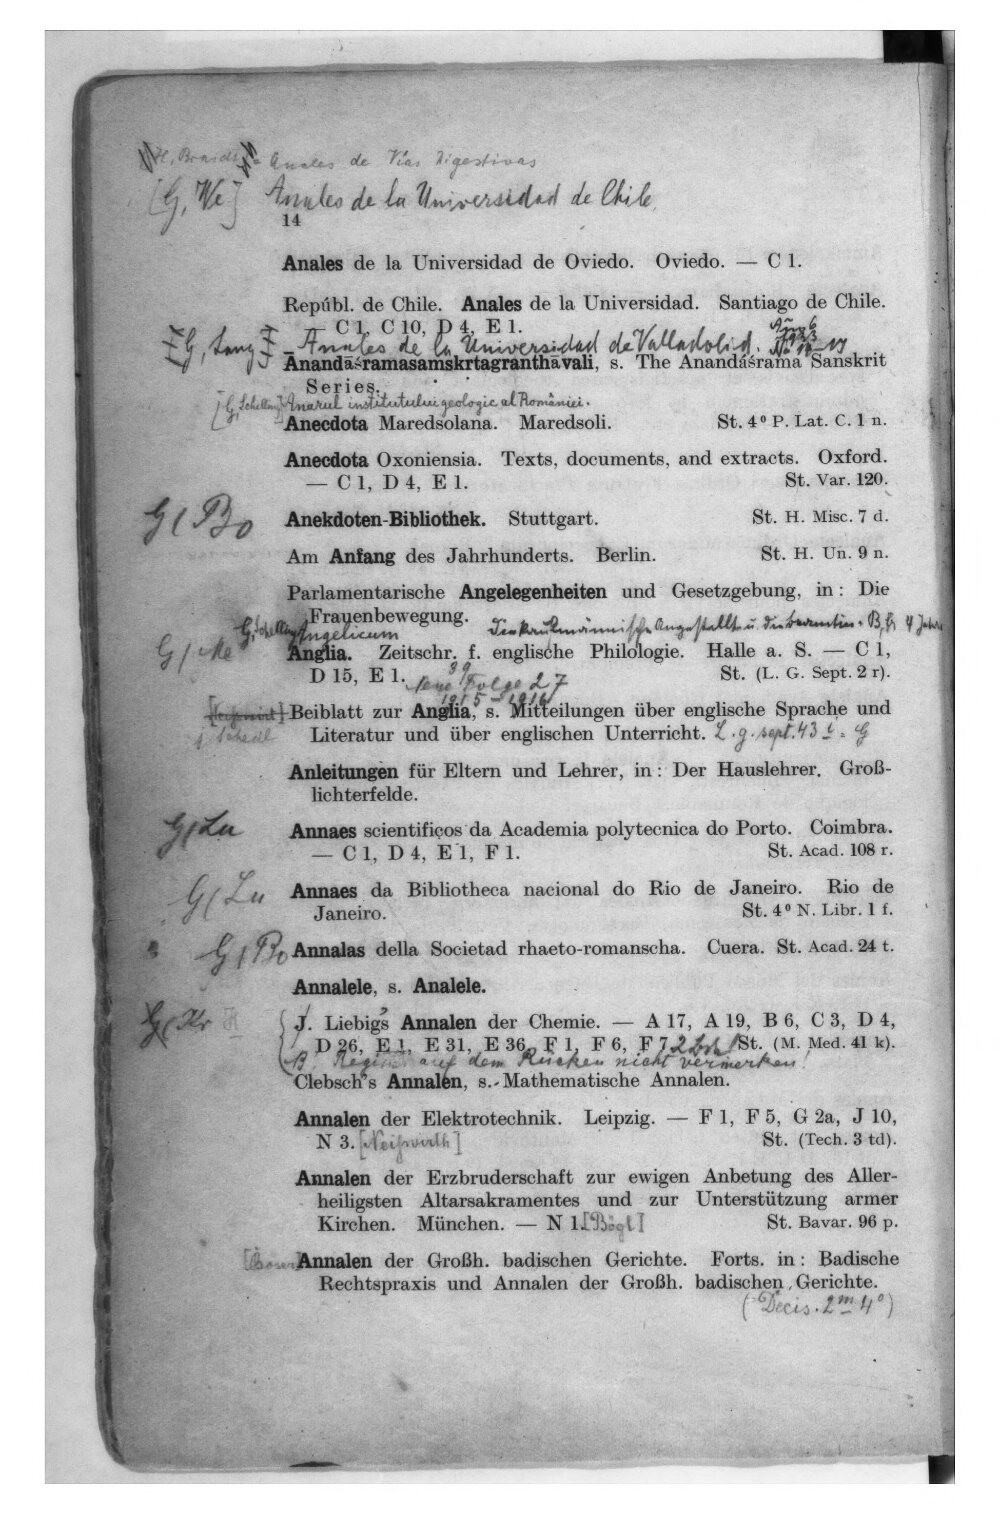 Anales de Vías Digestivas
[G, We] Anales de la Universidad de Chile.
14
Anales de la Universidad de Oviedo. Oviedo. — C 1.
Repúbl. de Chile. Anales de la Universidad. Santiago de Chile.
— C 1, C 10, D 4, E 1.
G, Lang — Anales de la Universidad de Valladolid.
Ānandāśramasamskrtagranthāvali, s. The Anandáśrama Sanskrit
Series.
[G, Schelling] Anarul institutului geologic al României.
Anecdota Maredsolana. Maredsoli. St. 4⁰ P. Lat. C. 1 n.
Anecdota Oxoniensia. Texts, documents, and extracts. Oxford.
— C 1, D 4, E 1. St. Var. 120.
G/Bo Anekdoten-Bibliothek. Stuttgart. St. H. Misc. 7 d.
Am Anfang des Jahrhunderts. Berlin. St. H. Un. 9 n.
Parlamentarische Angelegenheiten und Gesetzgebung, in: Die
Frauenbewegung.
G, Schelling Angelicum
G/Me Anglia. Zeitschr. f. englische Philologie. Halle a. S. — C 1,
D 15, E 1. St. (L. G. Sept. 2 r).
Neue Folge 27
1915–1916
Beiblatt zur Anglia, s. Mitteilungen über englische Sprache und
Literatur und über englischen Unterricht. L. g. sept. 43
Anleitungen für Eltern und Lehrer, in: Der Hauslehrer. Groß-
lichterfelde.
G/Lu Annaes scientificos da Academia polytecnica do Porto. Coimbra.
— C 1, D 4, E 1, F 1. St. Acad. 108 r.
G/Lu Annaes da Bibliotheca nacional do Rio de Janeiro. Rio de
Janeiro. St. 4⁰ N. Libr. 1 f.
G/Bo Annalas della Societad rhaeto-romanscha. Cuera. St. Acad. 24 t.
Annalele, s. Analele.
G/Kr J. Liebig's Annalen der Chemie. — A 17, A 19, B 6, C 3, D 4,
D 26, E 1, E 31, E 36, F 1, F 6, F 7 St. (M. Med. 41 k).
B. Register auf dem Rücken nicht vermerken!
Clebsch's Annalen, s. Mathematische Annalen.
Annalen der Elektrotechnik. Leipzig. — F 1, F 5, G 2a, J 10,
N 3. [Neißwirth] St. (Tech. 3 td).
Annalen der Erzbruderschaft zur ewigen Anbetung des Aller-
heiligsten Altarsakramentes und zur Unterstützung armer
Kirchen. München. — N 1. [Bögl] St. Bavar. 96 p.
Annalen der Großh. badischen Gerichte. Forts. in: Badische
Rechtspraxis und Annalen der Großh. badischen Gerichte.
(Decis. 2m 4⁰)